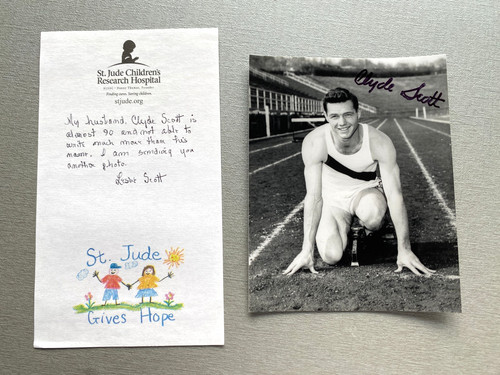 St. Jude Children's
Research Hospital
Finding cures. Saving children.
stjude.org
My husband, Clyde Scott is
almost 90 and not able to
write much more than his
name. I am sending you
another photo.
Leslie Scott
St. Jude
Gives Hope
Clyde Scott